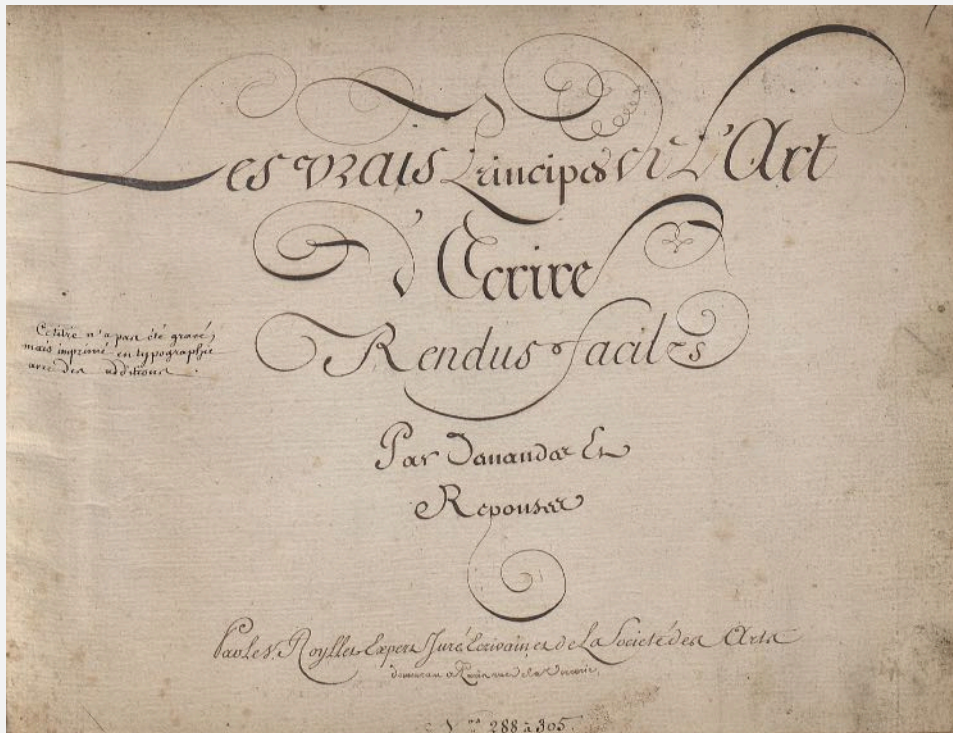 Les vrais Principes de L'Art
D'Ecrire
Rendus faciles
Ce titre n'a pas été gravé,
mais imprimé en typographie
avec des additions.
Par Demandes Et
Reponses
Par le S. Roÿllet Expert Juré Ecrivain, et de La Societé des Arts
demeurant a Paris rue de la Verrerie.
N.os 288 à 305.